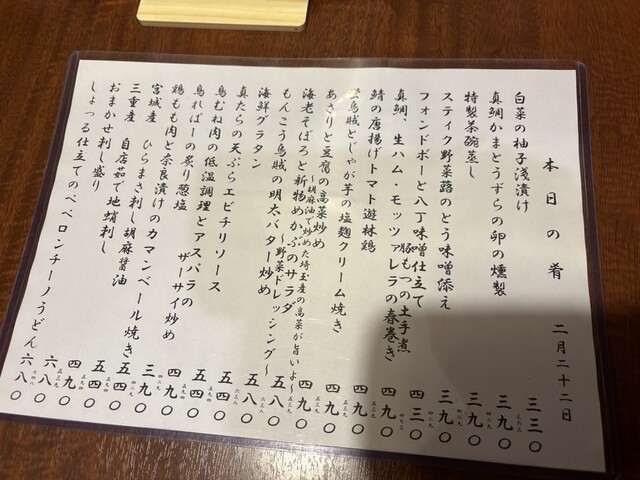 本日の肴 二月二十二日
白菜の柚子浅漬け 三三〇
真鯛かまとうずらの卵の燻製 三九〇
特製茶碗蒸し 三九〇
スティク野菜蕗のとう味噌添え 三九〇
フォンドボーと八丁味噌仕立て
豚もつの土手煮 四三〇
真鯛、生ハム・モッツァレラの春巻き 四九〇
鯖の唐揚げトマト遊林鶏 四九〇
蛍烏賊とじゃが芋の塩麹クリーム焼き 四九〇
あさりと豆腐の高菜炒め 四九〇
〜胡麻油で炒めた埼玉産の高菜が旨いよ〜
海老そぼろと新物めかぶのサラダ 五八〇
〜野菜ドレッシング〜
もんこう烏賊の明太バター炒め 五八〇
海鮮グラタン
真たらの天ぷらエビチリソース 五四〇
鳥むね肉の低温調理とアスパラの
ザーサイ炒め
鳥ればーの炙り葱塩
鶏もも肉と奈良漬けのカマンベール焼き
宮城産 ひらまさ刺し胡麻醤油
三重産 自店茹で地蛸刺し
おまかせ刺し盛り
しょっつる仕立てのペペロンチーノうどん 六八〇